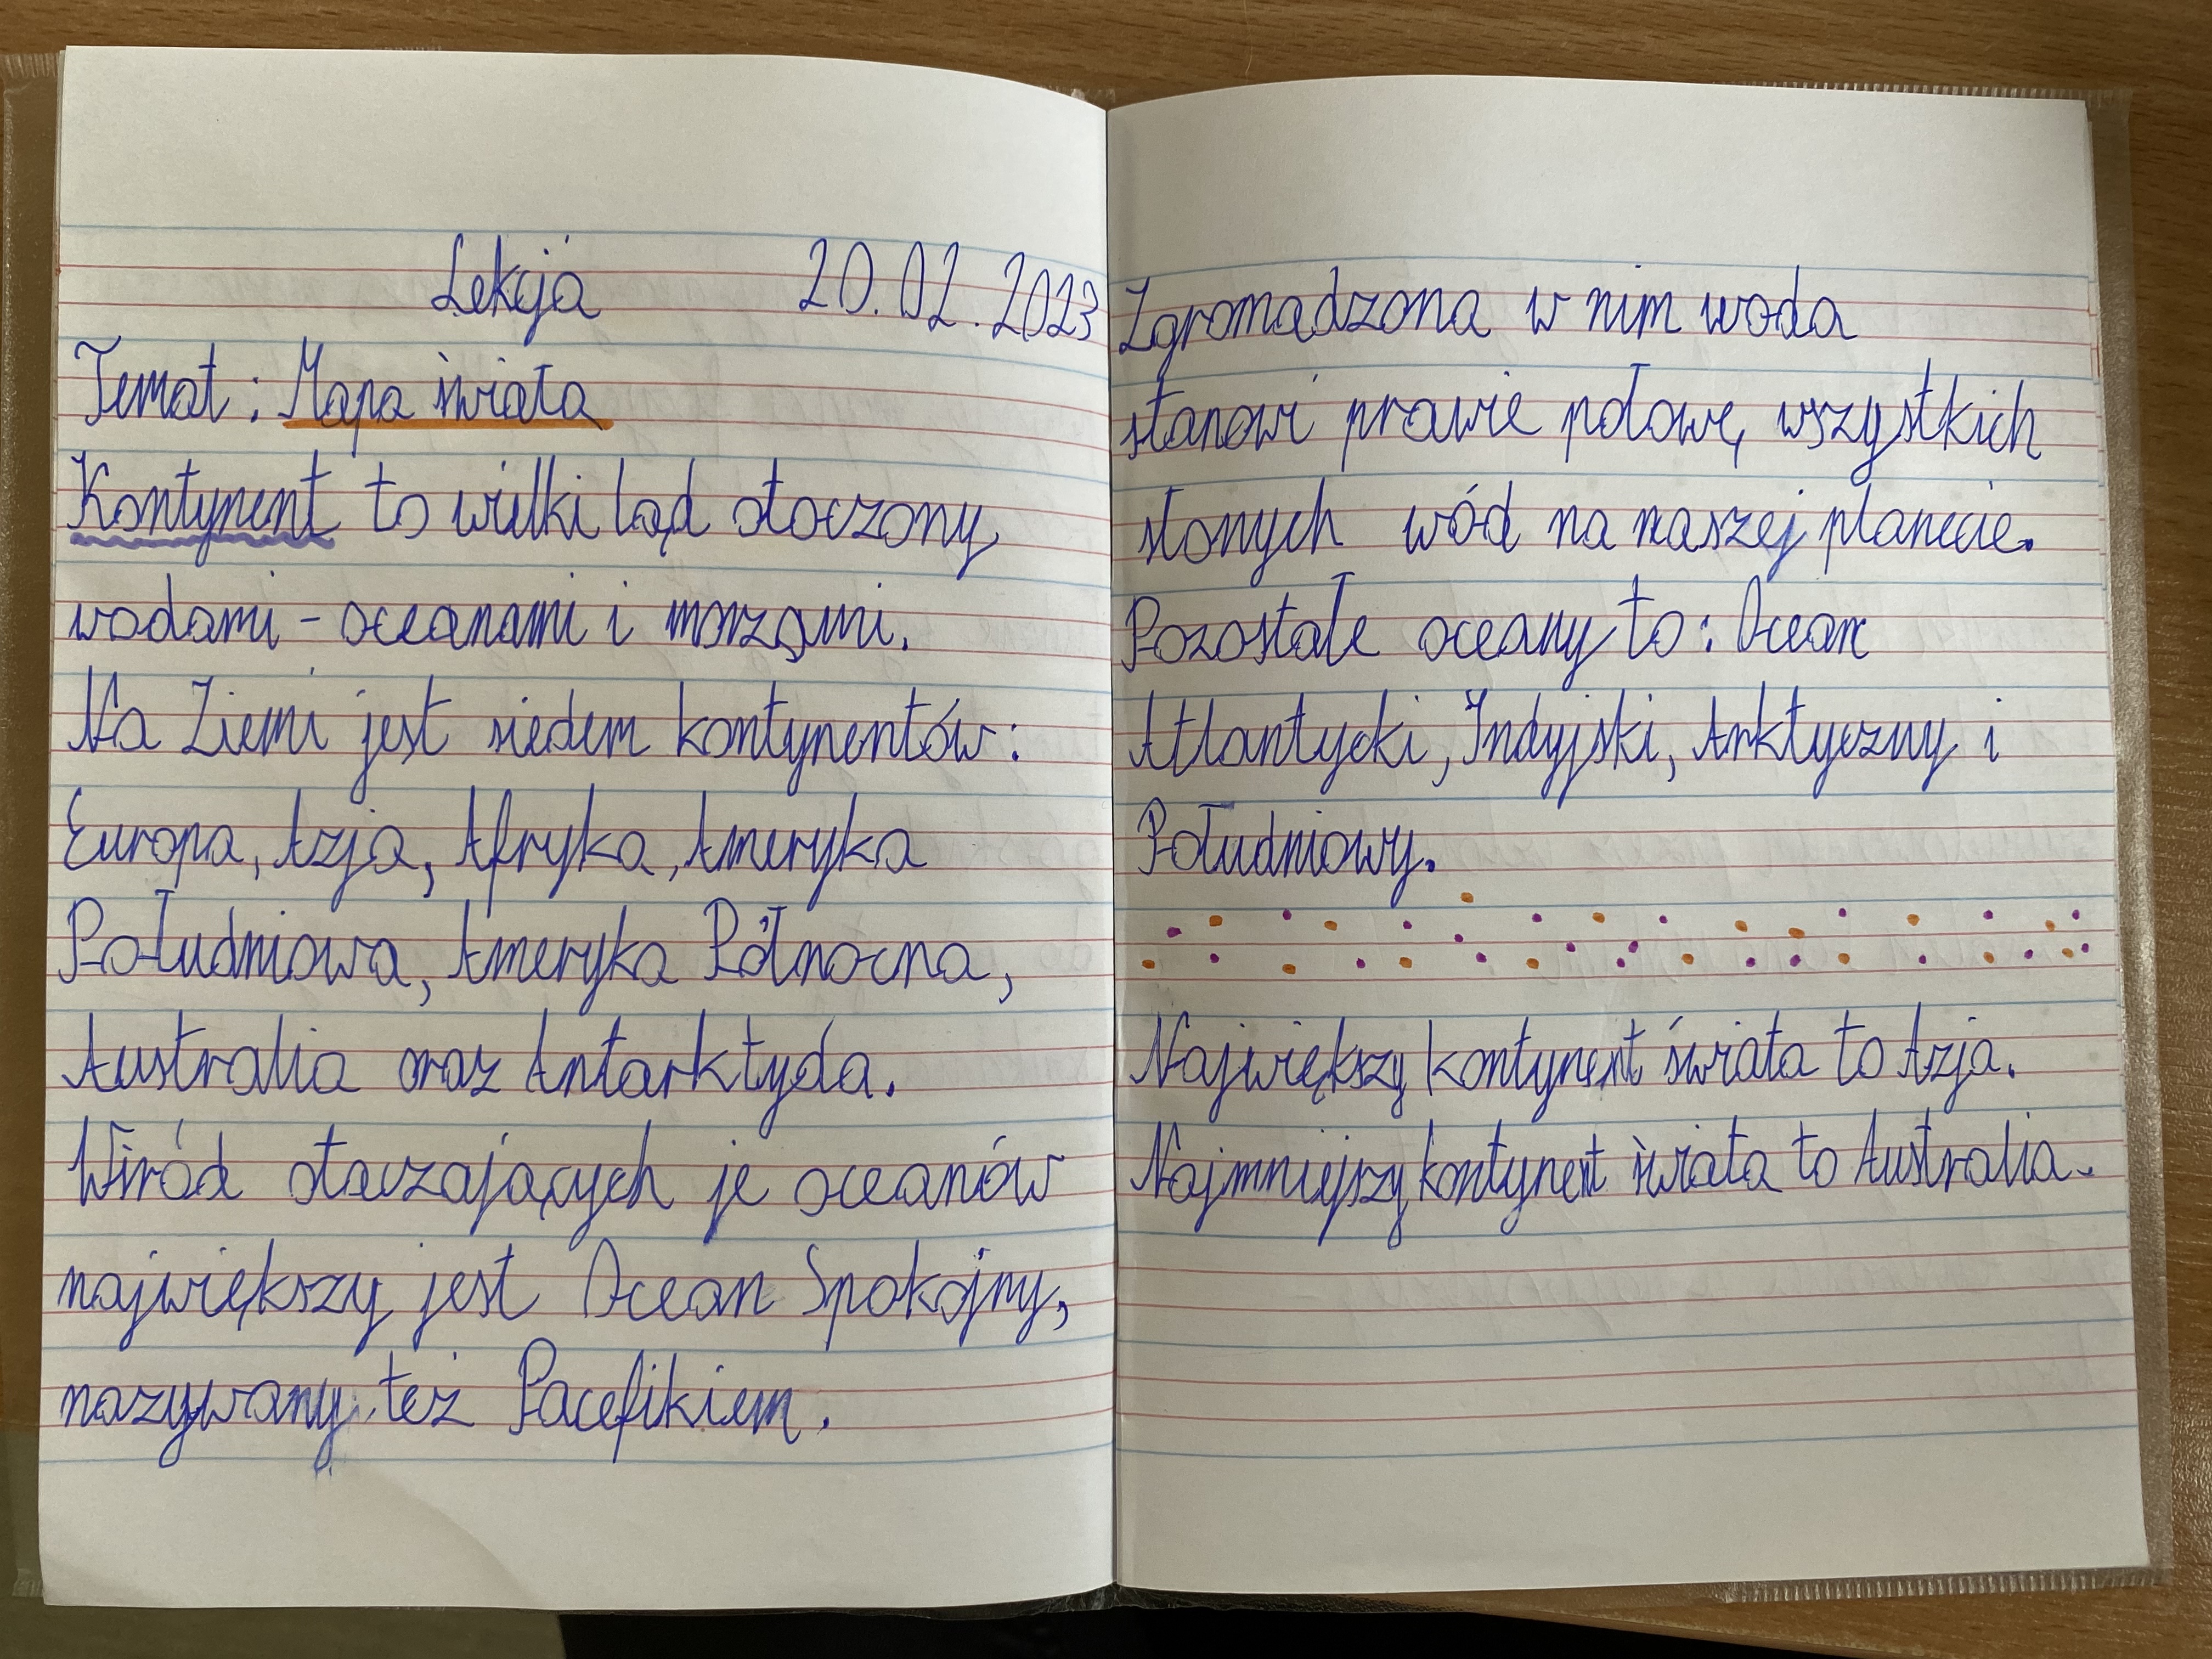 Lekcja 20.02.2023
Temat: Mapa świata
Kontynent to wielki ląd otoczony
wodami - oceanami i morzami.
Na Ziemi jest siedem kontynentów:
Europa, Azja, Afryka, Ameryka
Południowa, Ameryka Północna,
Australia oraz Antarktyda.
Wśród otaczających je oceanów
największy jest Ocean Spokojny,
nazywany też Pacefikiem.
Zgromadzona w nim woda
stanowi prawie połowę wszystkich
słonych wód na naszej planecie.
Pozostałe oceany to: Ocean
Atlantycki, Indyjski, Arktyczny i
Południowy.
Największy kontynent świata to Azja.
Najmniejszy kontynent świata to Australia.